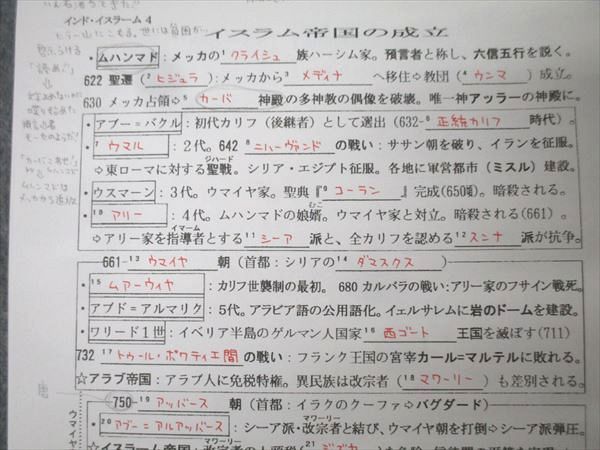 インド・イスラーム 4
イスラム帝国の成立
・ムハンマド：メッカの¹クライシュ族ハーシム家。預言者と称し、六信五行を説く。
622 聖遷（²ヒジュラ）：メッカから³メディナへ移住⇨教団（⁴ウンマ）成立。
630 メッカ占領⇨⁵カーバ神殿の多神教の偶像を破壊。唯一神アッラーの神殿に。
・アブー＝バクル：初代カリフ（後継者）として選出（632-⁶正統カリフ時代）。
・⁷ウマル：２代。642 ⁸ニハーヴァンドの戦い：ササン朝を破り、イランを征服。
ジハード
⇨東ローマに対する聖戦。シリア・エジプト征服。各地に軍営都市（ミスル）建設。
・ウスマーン：３代。ウマイヤ家。聖典『⁹コーラン』完成(650頃)。暗殺される。
むこ
・¹⁰アリー：４代。ムハンマドの娘婿。ウマイヤ家と対立。暗殺される(661)。
イマーム
⇨アリー家を指導者とする¹¹シーア派と、全カリフを認める¹²スンナ派が抗争。
661-¹³ウマイヤ朝（首都：シリアの¹⁴ダマスクス）
・¹⁵ムアーウィヤ：カリフ世襲制の最初。680 カルバラの戦い：アリー家のフサイン戦死。
・アブド＝アルマリク：５代。アラビア語の公用語化。イェルサレムに岩のドームを建設。
・ワリード１世：イベリア半島のゲルマン人国家¹⁶西ゴート王国を滅ぼす(711)
732 ¹⁷トゥール・ポワティエ間の戦い：フランク王国の宮宰カール＝マルテルに敗れる。
☆アラブ帝国：アラブ人に免税特権。異民族は改宗者（¹⁸マワーリー）も差別される。
750-¹⁹アッバース朝（首都：イラクのクーファ⇨バグダード）
マワーリー
・²⁰アブー＝アルアッバース：シーア派・改宗者と結び、ウマイヤ朝を打倒⇨シーア派弾圧。
マワーリー
ウマイヤ